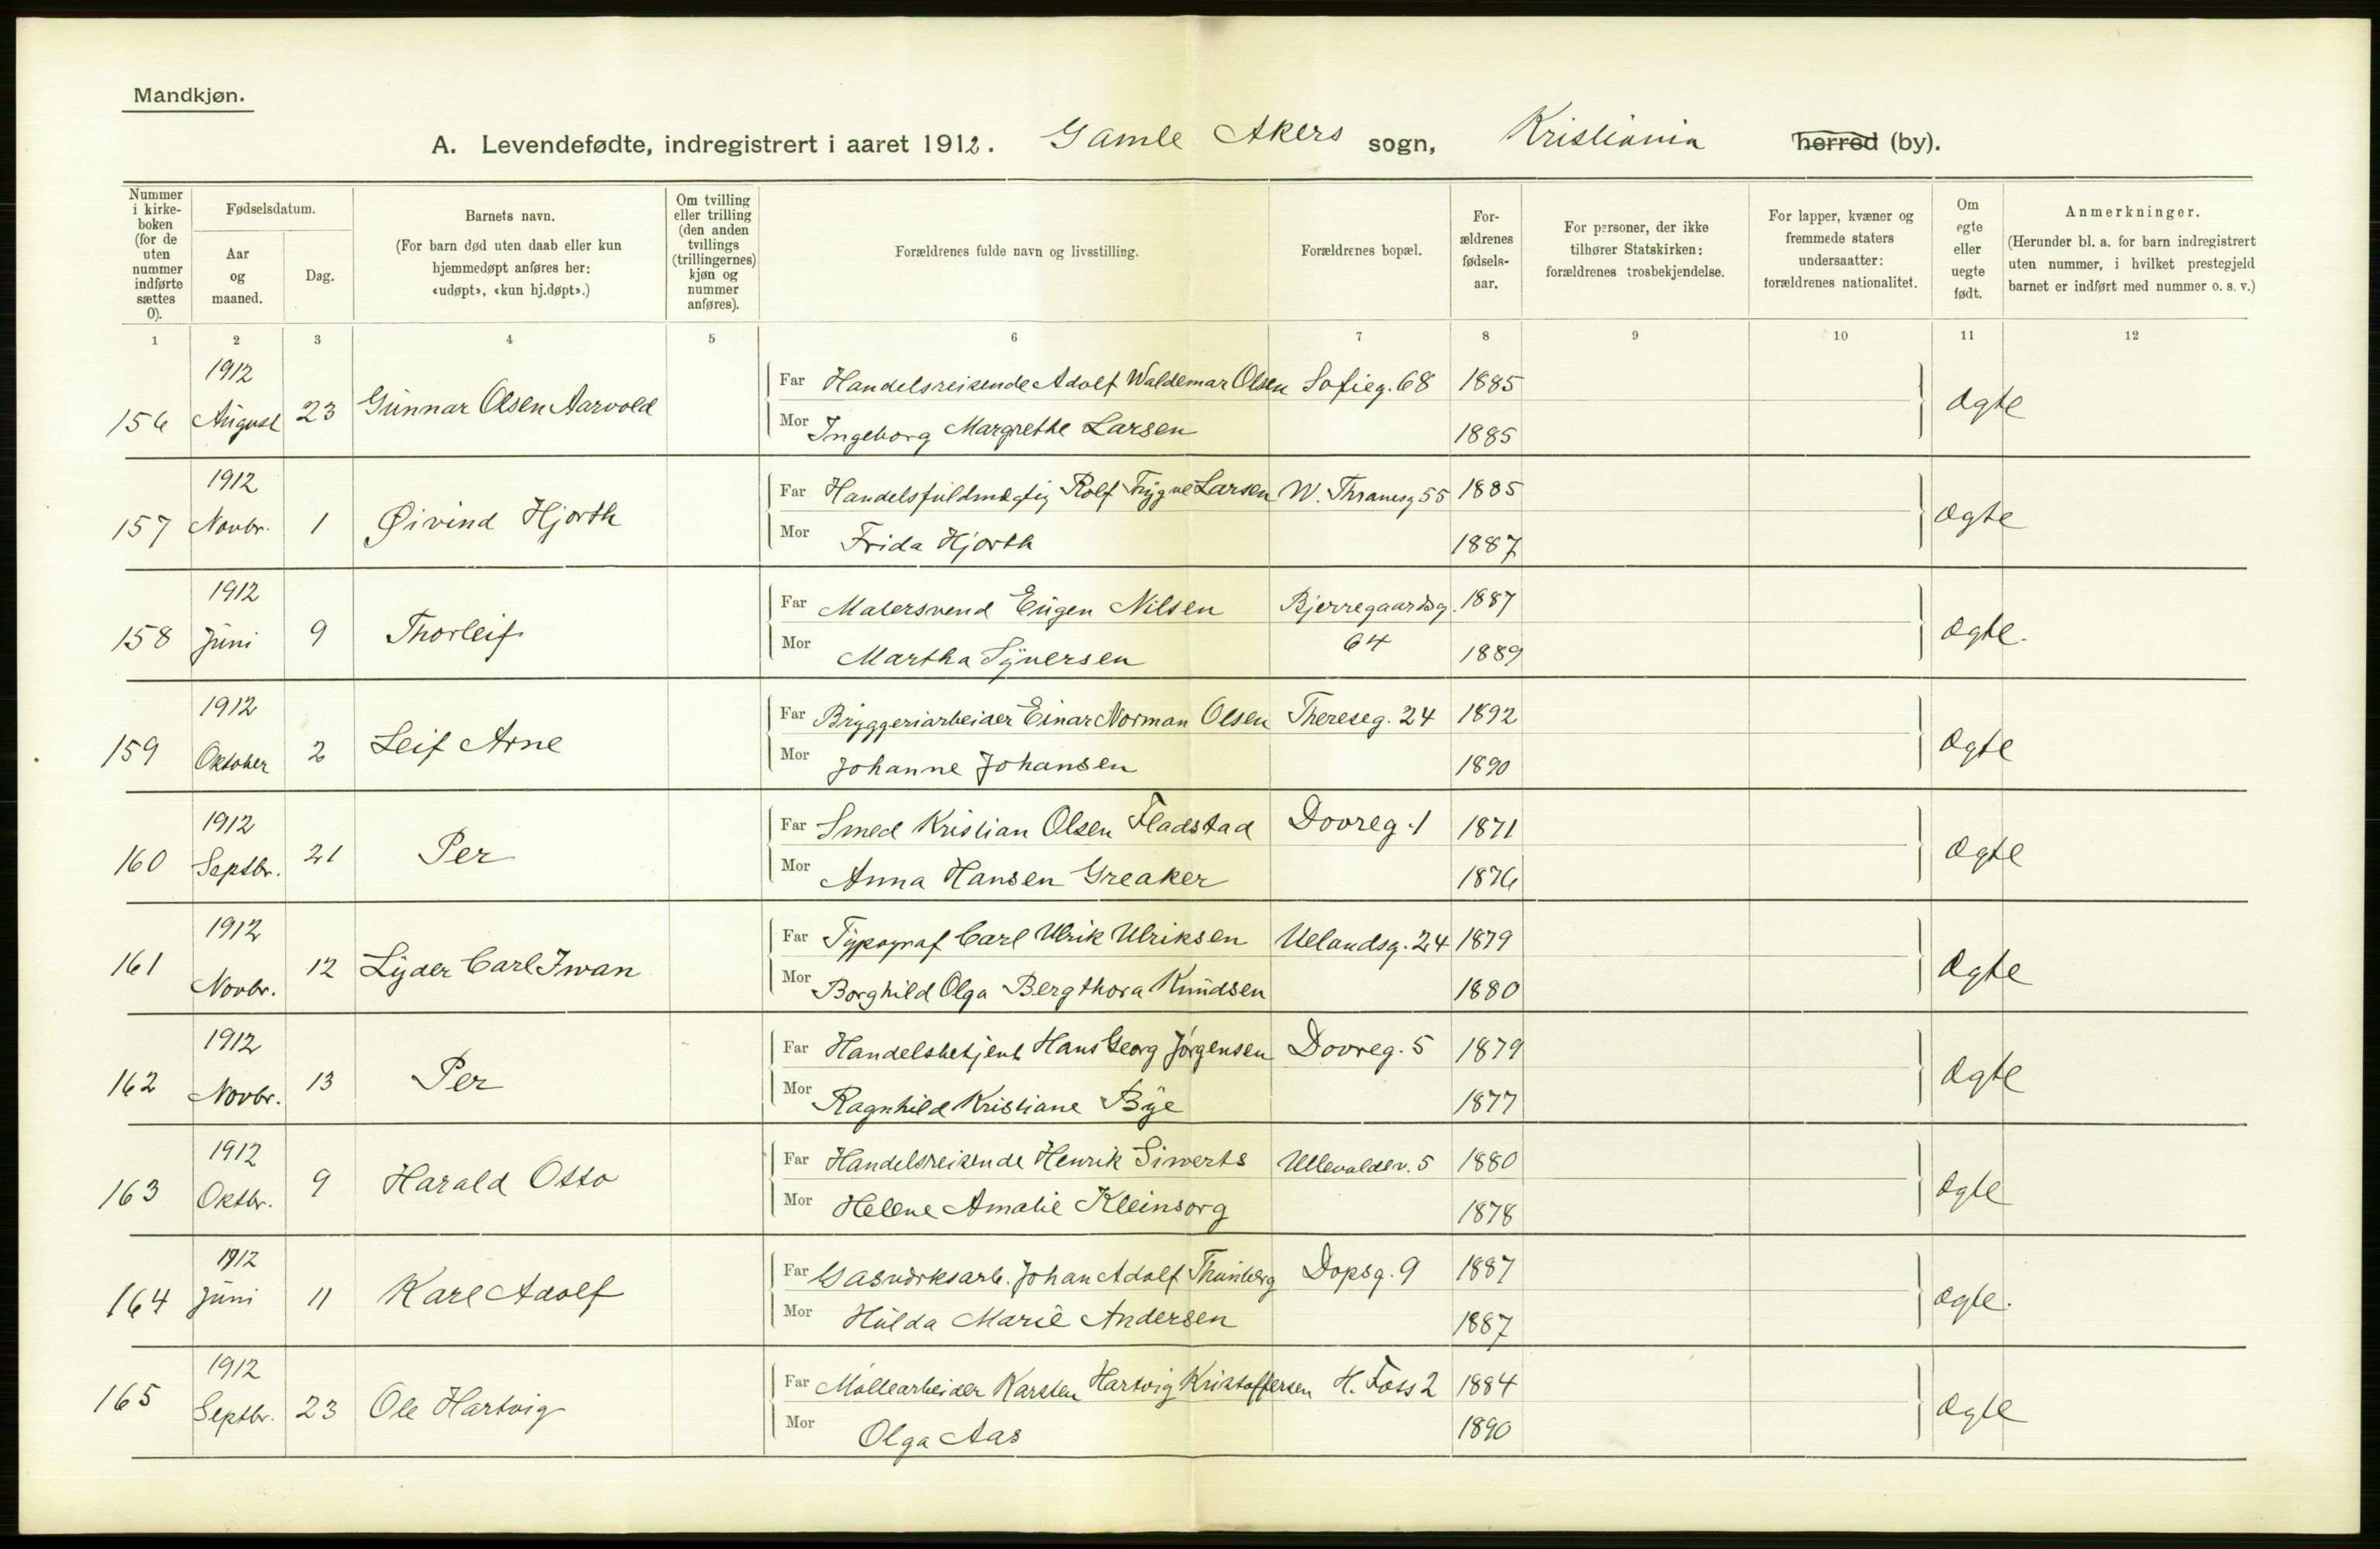 Mandkjøn.
A. Levendefødte, indregistrert i aaret 1912. Gamle Akers sogn, Kristiania herred (by).
Nummer i kirke-boken (for de uten nummer indførte sættes 0).
Fødselsdatum.
Aar og maaned.
Dag.
Barnets navn.
(For barn død uten daab eller kun hjemmedøpt anføres her: «udøpt», «kun hj.døpt».)
Om tvilling eller trilling (den anden tvillings (trillingernes) kjøn og nummer anføres).
Forældrenes fulde navn og livsstilling.
Forældrenes bopæl.
For-ældrenes fødsels-aar.
For personer, der ikke tilhører Statskirken: forældrenes trosbekjendelse.
For lapper, kvæner og fremmede staters undersaatter: forældrenes nationalitet.
Om egte eller uegte født.
Anmerkninger.
(Herunder bl. a. for barn indregistrert uten nummer, i hvilket prestegjeld barnet er indført med nummer o. s. v.)
1 2 3 4 5 6 7 8 9 10 11 12
1912 Far Handelsreisende Adolf Waldemar Olsen Sofieg. 68 1885
156 August 23 Gunnar Olsen Aarvold Ægte
Mor Ingeborg Margrethe Larsen 1885
1912 Far Handelsfuldmægtig Rolf Trygve Larsen W. Thranesg 55 1885
157 Novbr. 1 Øivind Hjorth Ægte
Mor Frida Hjorth 1887
1912 Far Malersvend Eugen Nilsen Bjerregaardsg. 1887
158 Juni 9 Thorleif 64 Ægte.
Mor Martha Syversen 1889
1912 Far Bryggeriarbeider Einar Norman Olsen Thereseg. 24 1892
159 Oktober 2 Leif Arne Ægte
Mor Johanne Johansen 1890
1912 Far Smed Kristian Olsen Fladstad Dovreg. 1 1871
160 Septbr. 21 Per Ægte
Mor Anna Hansen Greaker 1876
1912 Far Typograf Carl Ulrik Ulriksen Uelandsg. 24 1879
161 Novbr. 12 Lyder Carl Iwan Ægte
Mor Borghild Olga Bergthora Knudsen 1880
1912 Far Handelsbetjent Hans Georg Jørgensen Dovreg. 5 1879
162 Novbr. 13 Per Ægte
Mor Ragnhild Kristiane Bye 1877
1912 Far Handelsreisende Henrik Siwerts Ullevoldsv. 5 1880
163 Oktbr. 9 Harald Otto Ægte
Mor Helene Amalie Kleinsorg 1878
1912 Far Gasværksarb. Johan Adolf Thunberg Dopsg. 9 1887
164 Juni 11 Karl Adolf Ægte.
Mor Hulda Marie Andersen 1887
1912 Far Møllearbeider Karsten Hartvig Kristoffersen H. Foss 2 1884
165 Septbr. 23 Ole Hartvig Ægte
Mor Olga Aas 1890